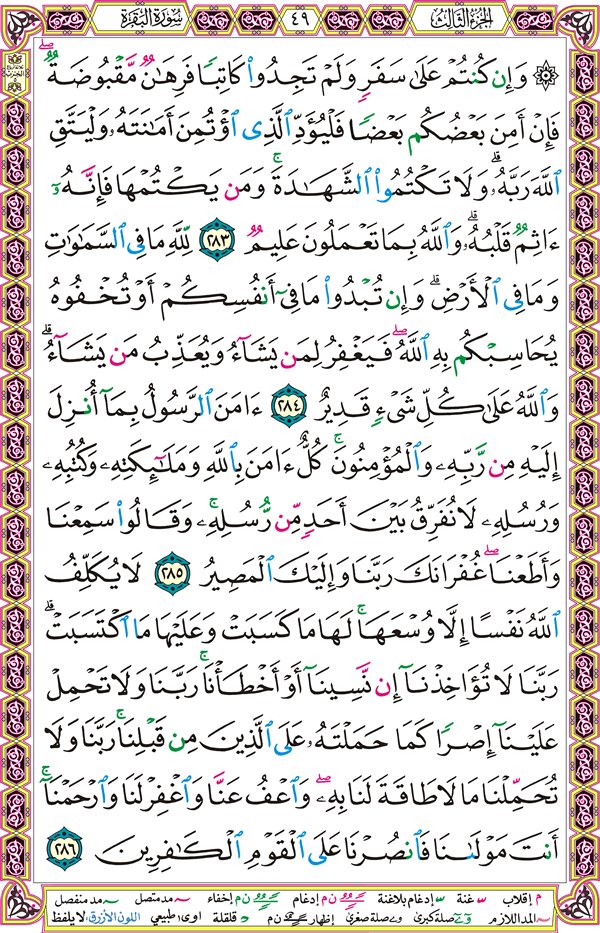 الجزء الثالث ٤٩ سورة البقرة
۞ وَإِن كُنتُمْ عَلَىٰ سَفَرٍ وَلَمْ تَجِدُوا۟ كَاتِبًا فَرِهَـٰنٌ مَّقْبُوضَةٌ ۖ
فَإِنْ أَمِنَ بَعْضُكُم بَعْضًا فَلْيُؤَدِّ ٱلَّذِى ٱؤْتُمِنَ أَمَـٰنَتَهُۥ وَلْيَتَّقِ
ٱللَّهَ رَبَّهُۥ ۗ وَلَا تَكْتُمُوا۟ ٱلشَّهَـٰدَةَ ۚ وَمَن يَكْتُمْهَا فَإِنَّهُۥٓ
ءَاثِمٌ قَلْبُهُۥ ۗ وَٱللَّهُ بِمَا تَعْمَلُونَ عَلِيمٌ ٢٨٣ لِّلَّهِ مَا فِى ٱلسَّمَـٰوَٰتِ
وَمَا فِى ٱلْأَرْضِ ۗ وَإِن تُبْدُوا۟ مَا فِىٓ أَنفُسِكُمْ أَوْ تُخْفُوهُ
يُحَاسِبْكُم بِهِ ٱللَّهُ ۖ فَيَغْفِرُ لِمَن يَشَآءُ وَيُعَذِّبُ مَن يَشَآءُ ۗ
وَٱللَّهُ عَلَىٰ كُلِّ شَىْءٍ قَدِيرٌ ٢٨٤ ءَامَنَ ٱلرَّسُولُ بِمَآ أُنزِلَ
إِلَيْهِ مِن رَّبِّهِۦ وَٱلْمُؤْمِنُونَ ۚ كُلٌّ ءَامَنَ بِٱللَّهِ وَمَلَـٰٓئِكَتِهِۦ وَكُتُبِهِۦ
وَرُسُلِهِۦ لَا نُفَرِّقُ بَيْنَ أَحَدٍ مِّن رُّسُلِهِۦ ۚ وَقَالُوا۟ سَمِعْنَا
وَأَطَعْنَا ۖ غُفْرَانَكَ رَبَّنَا وَإِلَيْكَ ٱلْمَصِيرُ ٢٨٥ لَا يُكَلِّفُ
ٱللَّهُ نَفْسًا إِلَّا وُسْعَهَا ۚ لَهَا مَا كَسَبَتْ وَعَلَيْهَا مَا ٱكْتَسَبَتْ ۗ
رَبَّنَا لَا تُؤَاخِذْنَآ إِن نَّسِينَآ أَوْ أَخْطَأْنَا ۚ رَبَّنَا وَلَا تَحْمِلْ
عَلَيْنَآ إِصْرًا كَمَا حَمَلْتَهُۥ عَلَى ٱلَّذِينَ مِن قَبْلِنَا ۚ رَبَّنَا وَلَا
تُحَمِّلْنَا مَا لَا طَاقَةَ لَنَا بِهِۦ ۖ وَٱعْفُ عَنَّا وَٱغْفِرْ لَنَا وَٱرْحَمْنَآ ۚ
أَنتَ مَوْلَىٰنَا فَٱنصُرْنَا عَلَى ٱلْقَوْمِ ٱلْكَـٰفِرِينَ ٢٨٦
م إقلاب غنة إدغام بلاغنة ن م إدغام ن م إخفاء مد متصل مد منفصل
المد اللازم صلة كبرى صلة صغرى إظهار ن م قلقلة اوى طبيعي اللون الأزرق: لا يلفظ